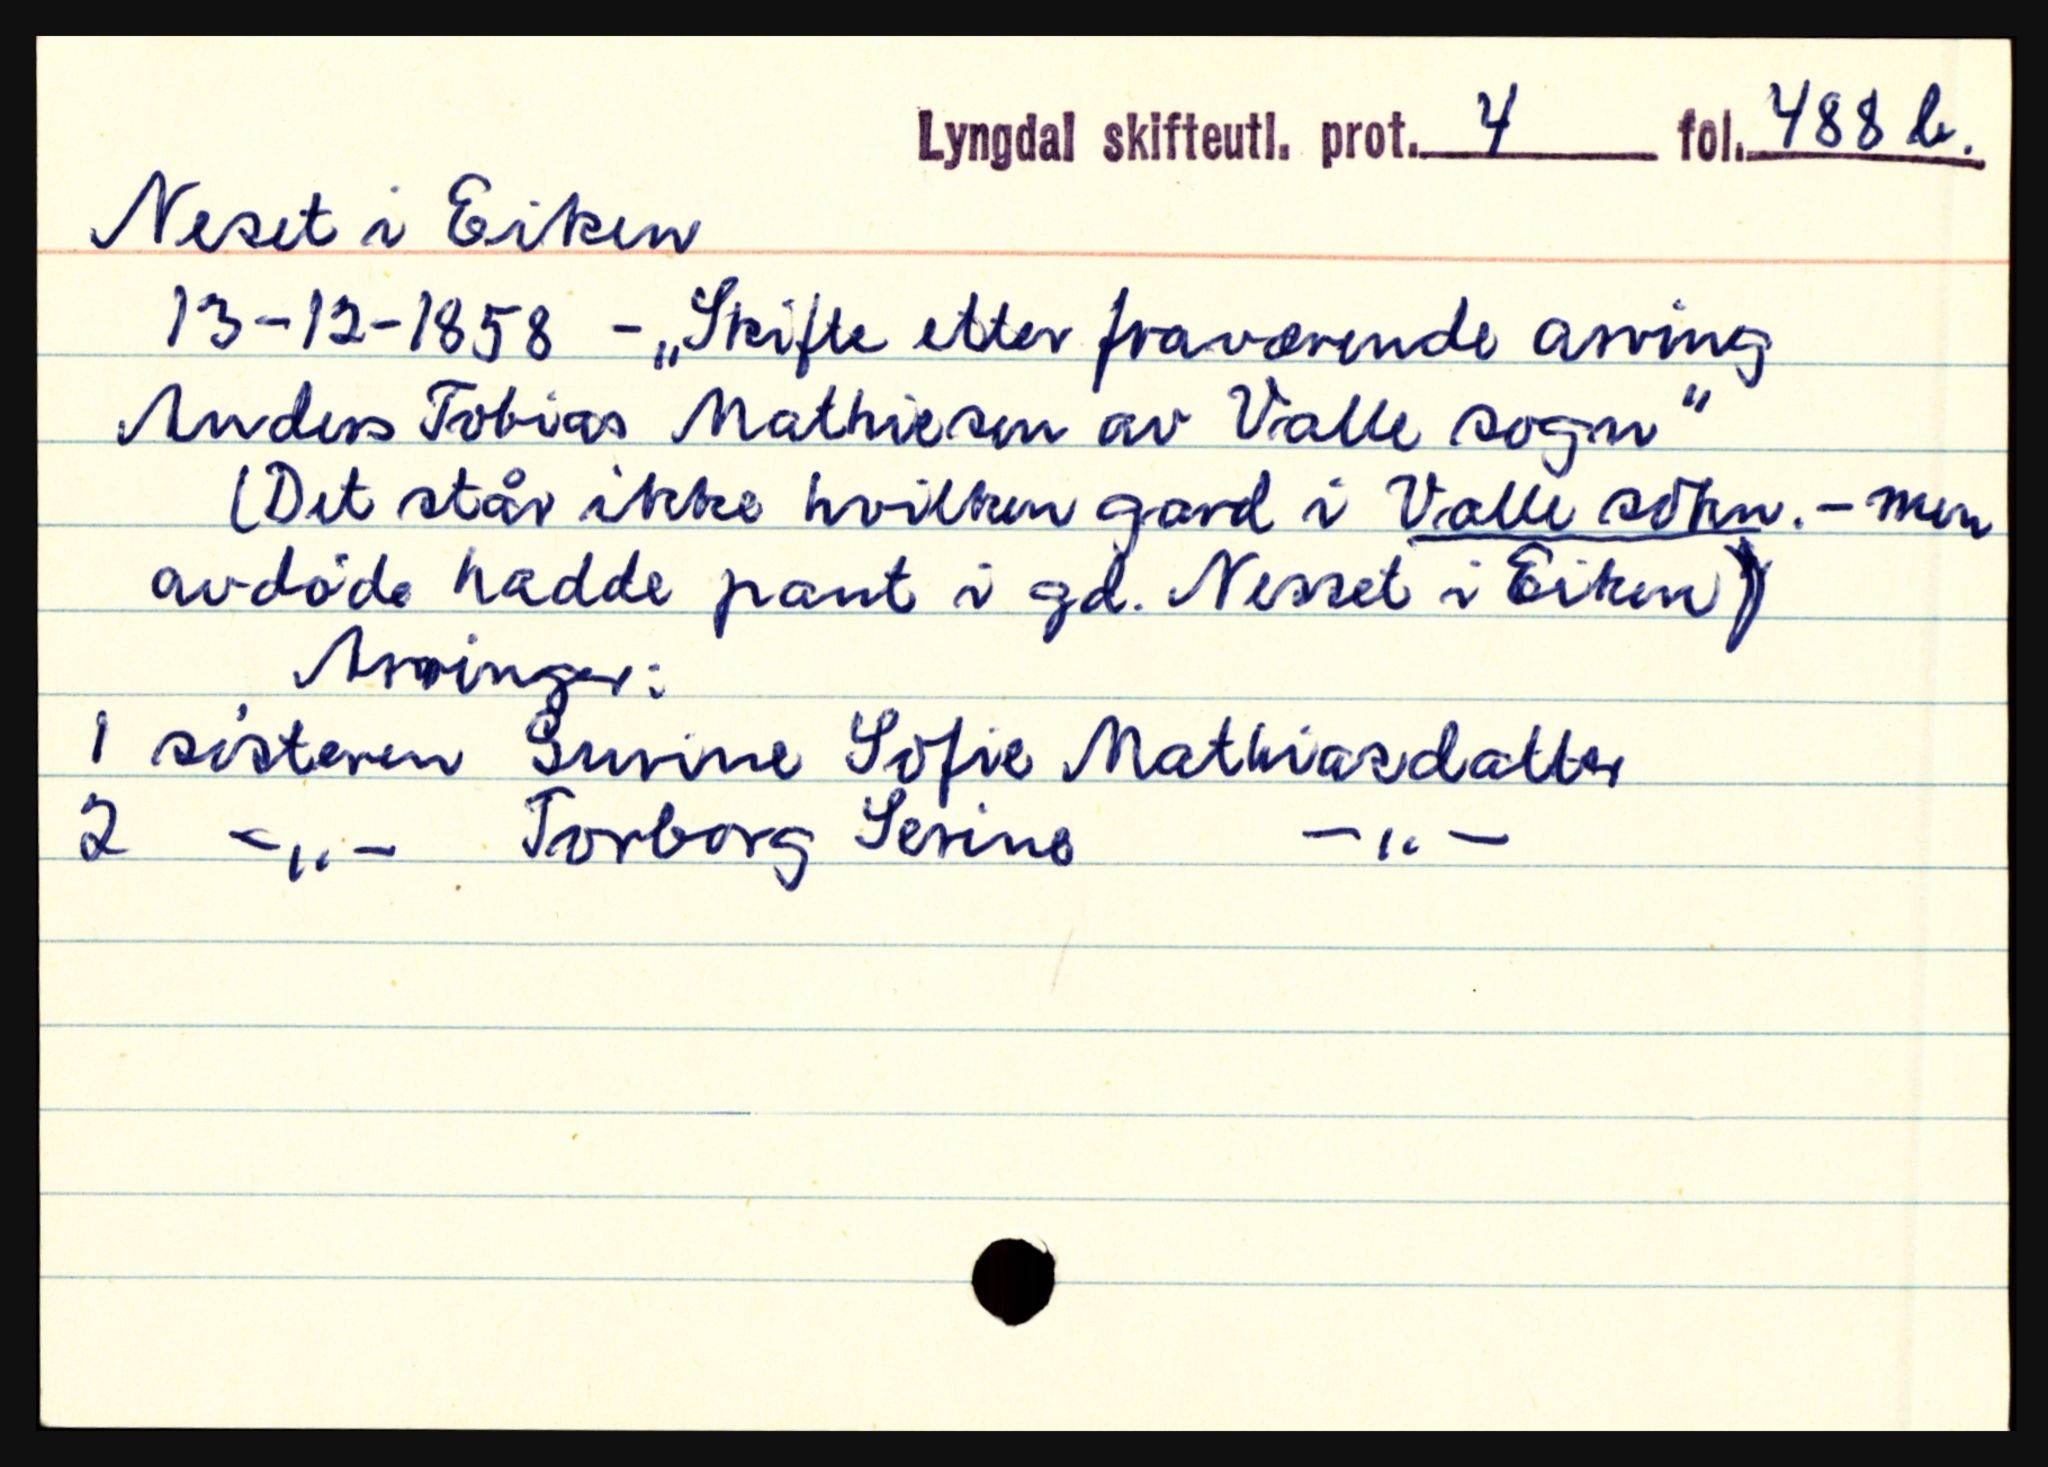 Lyngdal skifteutl. prot. 4 fol. 488 b.
Neset i Eiken
13-12-1858 - „Skifte etter fraværende arving
Anders Tobias Mathiesen av Valle sogn"
(Det står ikke hvilken gard i Valle sökn. - men
avdöde hadde pant i gd. Nesset i Eiken)
Arvinger:
1 sösteren Gurine Sofie Mathiasdatter
2 -„- Torborg Serine -„-